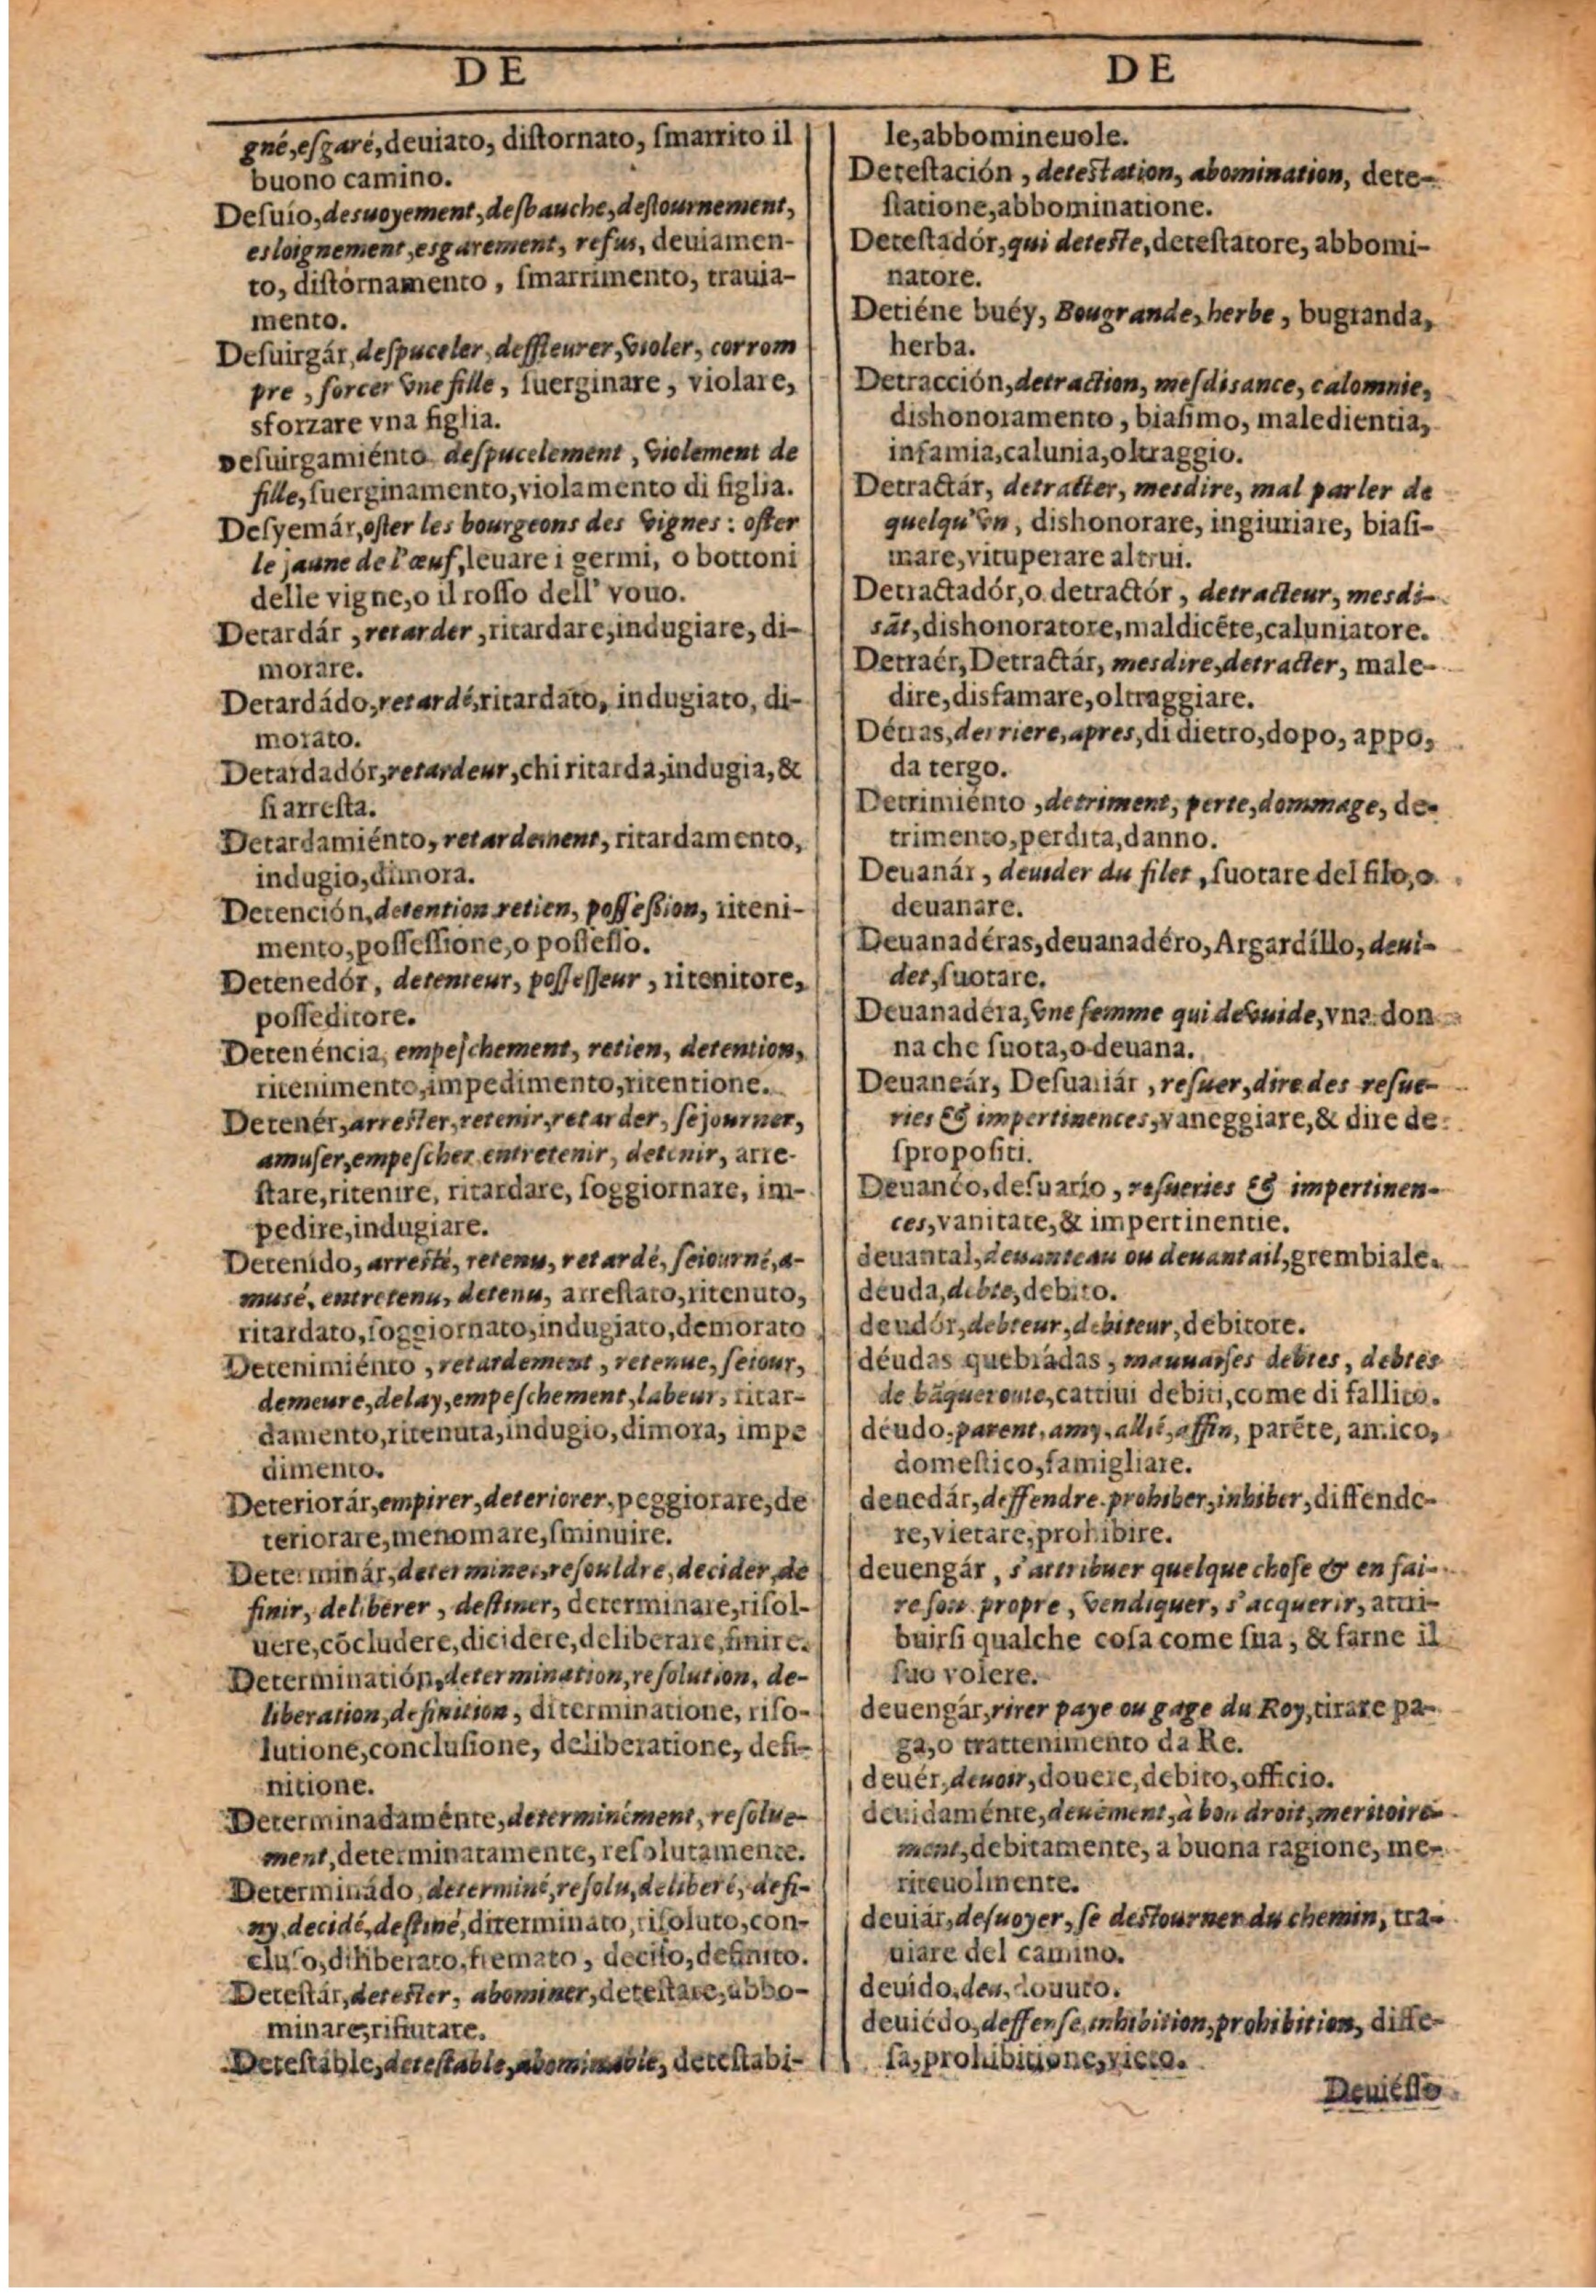 DE
DE
gné, eſgaré, deuiato, diſtornato, ſmarrito il
buono camino.
Deſuío, desuoyement, desbauche, deſtournement,
esloignement, esgarement, refus, deuiamen-
to, diſtornamento, ſmarrimento, trauia-
mento.
Deſuirgár, deſpuceler, deffleurer, violer, corrom
pre, forcer vne fille, ſuerginare, violare,
sforzare vna figlia.
Deſuirgamiénto deſpucelement, violement de
fille, ſuerginamento, violamento di figlia.
Deſyemár, oſter les bourgeons des vignes: oſter
le jaune de l'œuf, leuare i germi, o bottoni
delle vigne, o il roſſo dell' vouo.
Detardár, retarder, ritardare, indugiare, di-
morare.
Detardádo, retardé, ritardato, indugiato, di-
morato.
Detardadór, retardeur, chi ritarda, indugia, &
ſi arreſta.
Detardamiénto, retardement, ritardamento,
indugio, dimora.
Detención, detention retien, poſſeſſion, riteni-
mento, poſſeſſione, o poſſeſſo.
Detenedór, detenteur, poſſeſſeur, ritenitore,
poſſeditore.
Detenéncia, empeſchement, retien, detention,
ritenimento, impedimento, ritentione.
Detenér, arreſter, retenir, retarder, ſejourner,
amuſer, empeſcher entretenir, detenir, arre-
ſtare, ritenire, ritardare, ſoggiornare, im-
pedire, indugiare.
Detenído, arreſté, retenu, retardé, ſeiourné, a-
musé, entretenu, detenu, arreſtato, ritenuto,
ritardato, ſoggiornato, indugiato, demorato
Detenimiénto, retardement, retenue, ſeiour,
demeure, delay, empeſchement, labeur, ritar-
damento, ritenuta, indugio, dimora, impe
dimento.
Deteriorár, empirer, deteriorer, peggiorare, de
teriorare, menomare, ſminuire.
Determinár, determiner, reſouldre, decider, de
finir, deliberer, deſtiner, determinare, riſol-
uere, cõcludere, dicidere, deliberare, finire.
Determinatión, determination, reſolution, de-
liberation, definition, diterminatione, riſo-
lutione, concluſione, deliberatione, defi-
nitione.
Determinadaménte, determinément, reſolue-
ment, determinatamente, reſolutamente.
Determinádo, determiné, reſolu, deliberé, defi-
ny, decidé, deſtiné, diterminato, riſoluto, con-
cluſo, diliberato, fiemato, deciſo, definito.
Deteſtár, deteſter, abominer, deteſtare, abbo-
minare, rifiutare.
Deteſtáble, deteſtable, abominable, deteſtabi-
le, abbomineuole.
Deteſtación, deteſtation, abomination, dete-
ſtatione, abbominatione.
Deteſtadór, qui deteſte, deteſtatore, abbomi-
natore.
Detiéne buéy, Bougrande, herbe, bugranda,
herba.
Detracción, detraction, meſdisance, calomnie,
dishonoramento, biaſimo, maledientia,
infamia, calunia, oltraggio.
Detractár, detracter, mesdire, mal parler de
quelqu'vn, dishonorare, ingiuriare, biaſi-
mare, vituperare altrui.
Detractadór, o detractór, detracteur, mesdi-
sãt, dishonoratore, maldicẽte, caluniatore.
Detraér, Detractár, mesdire, detracter, male-
dire, disfamare, oltraggiare.
Détras, derriere, apres, di dietro, dopo, appo,
da tergo.
Detrimiénto, detriment, perte, dommage, de-
trimento, perdita, danno.
Deuanár, deuider du filet, ſuotare del filo, o
deuanare.
Deuanadéras, deuanadéro, Argardíllo, deui-
det, ſuotare.
Deuanadéra, vne femme qui deuuide, vna don
na che ſuota, o deuana.
Deuaneár, Deſuariár, reſuer, dire des reſue-
ries & impertinences, vaneggiare, & dire de
ſpropoſiti.
Deuanéo, deſuarío, reſueries & impertinen-
ces, vanitate, & impertinentie.
deuantal, deuanteau ou deuantail, grembiale.
déuda, debte, debito.
deudór, debteur, debiteur, debitore.
déudas quebrádas, mauuaiſes debtes, debtes
de bãqueroute, cattiui debiti, come di fallito.
déudo, parent, amy, allié, affin, parẽte, amico,
domeſtico, famigliare.
deuedár, deffendre prohiber, inhiber, diffende-
re, vietare, prohibire.
deuengár, s'attribuer quelque choſe & en fai-
re ſon propre, vendiquer, s'acquerir, attri-
buirſi qualche coſa come ſua, & farne il
ſuo volere.
deuengár, tirer paye ou gage du Roy, tirare pa-
ga, o trattenimento da Re.
deuér, deuoir, douere, debito, officio.
deuidaménte, deuëment, à bon droit, meritoire-
ment, debitamente, a buona ragione, me-
riteuolmente.
deuiár, deſuoyer, ſe deſtourner du chemin, tra-
uiare del camino.
deuído, deu, douuto.
deuiédo, deffenſe, inhibition, prohibition, diffe-
ſa, prohibitione, vieto.
Deuiéſſo